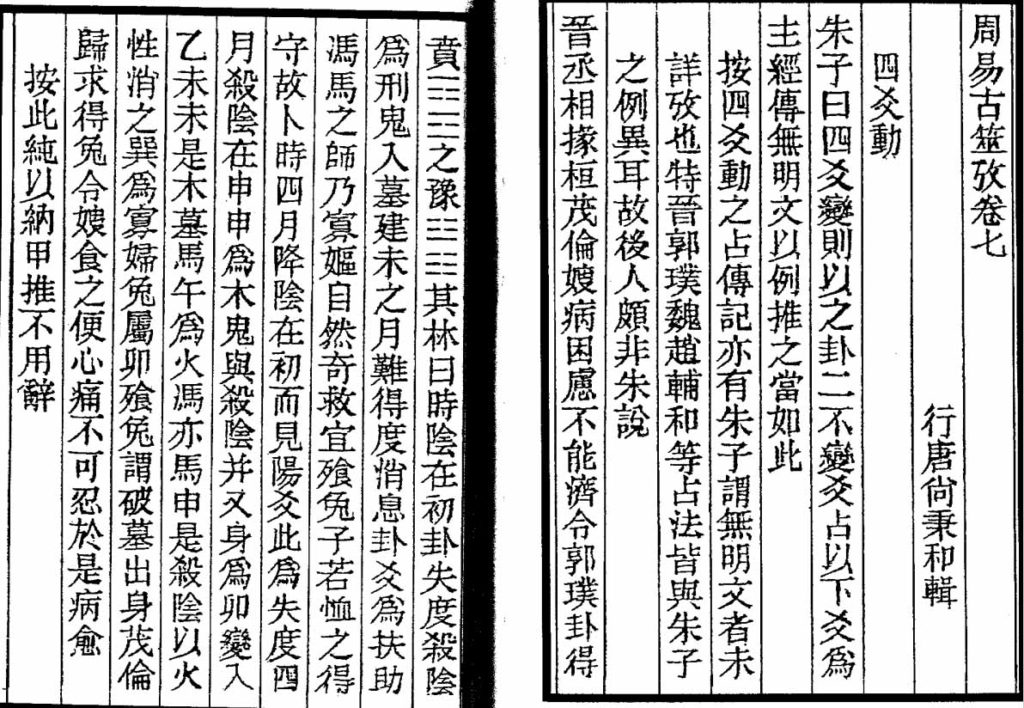 周易古筮攷卷七
行唐尚秉和輯
四爻動
朱子曰四爻變則以之卦二不變爻占以下爻爲
主經傳無明文以例推之當如此
按四爻動之占傳記亦有朱子謂無明文者未
詳攷也特晉郭璞魏趙輔和等占法皆與朱子
之例異耳故後人頗非朱說
晉丞相掾桓茂倫嫂病困慮不能濟令郭璞卦得
賁䷕之豫䷏其林曰時陰在初卦失度殺陰
爲刑鬼入墓建未之月難得度消息卦爻爲扶助
馮馬之師乃寡嫗自然奇救宜飱兔子若恤之得
守故卜時四月降陰在初而見陽爻此爲失度四
月殺陰在申申爲木鬼與殺陰并又身爲卯變入
乙未未是木墓馬午爲火馮亦馬申是殺陰以火
性消之巽爲寡婦兔屬卯飱兔謂破墓出身茂倫
歸求得兔令嫂食之便心痛不可忍於是病愈
按此純以納甲推不用辭